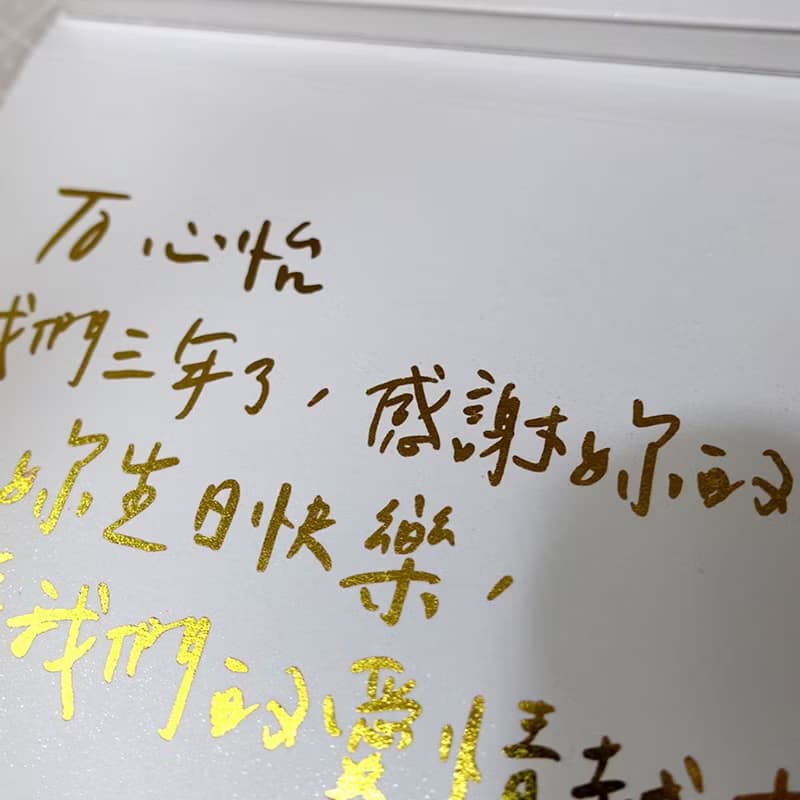 To 心怡
我們三年了，感謝妳的
妳生日快樂，
我們的愛情越